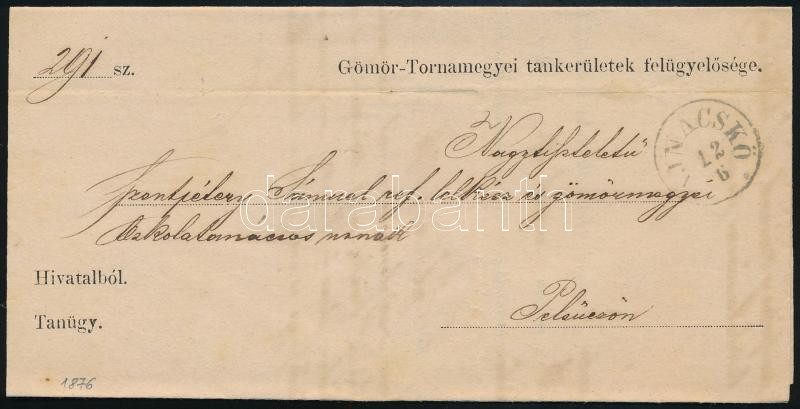 291 sz.
Gömör-Tornamegyei tankerületek felügyelősége.
VINACSKŐ
12
6
Nagytiszteletű
Szentpétery Sámuel ref. lelkész és gömörmegyei
iskolatanácsos urnak
darabanth
Hivatalból.
Tanügy.
Pelsüczön
1876